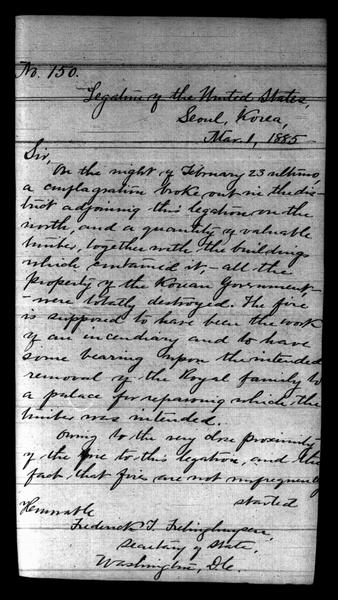 No. 150.
Legation of the United States,
Seoul, Korea,
Mar. 1, 1885
Sir,
On the night of February 23 ultimo
a conflagration broke out in the dis-
trict adjoining this legation on the
north, and a quantity of valuable
timber, together with the buildings
which contained it, - all the
property of the Korean Government -
- were totally destroyed. The fire
is supposed to have been the work
of an incendiary and to have
some bearing upon the intended
removal of the Royal family to
a palace for repairing which the
timber was intended.
Owing to the very close proximity
of the fire to this legation, and the
fact, that fires are not infrequently
started
Honorable
Frederick T. Frelinghuysen,
Secretary of State,
Washington, D.C.